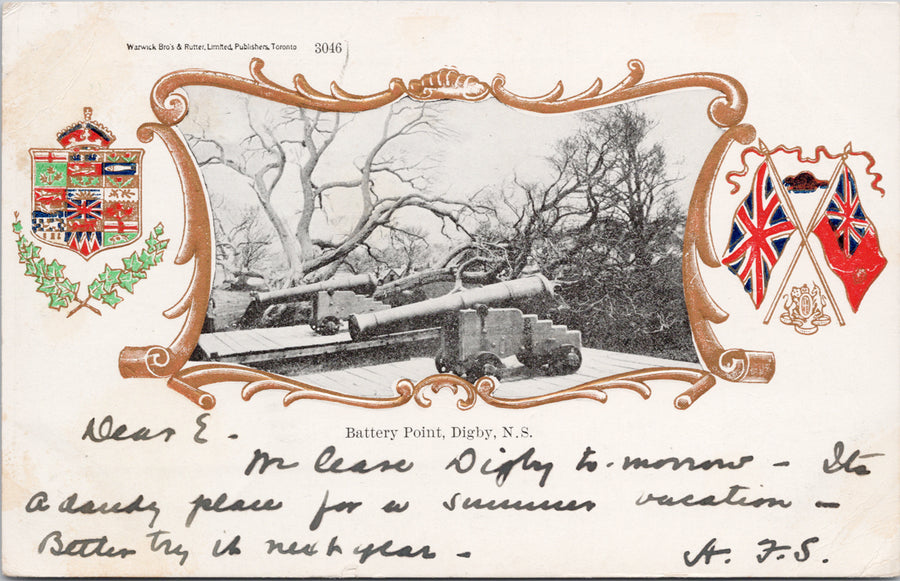 Warwick Bro's & Rutter, Limited, Publishers, Toronto 3046
Battery Point, Digby, N.S.
Dear E -
We lease Digby to-morrow - Its
a dandy place for a summer vacation -
Better try it next year -
A. F. S.